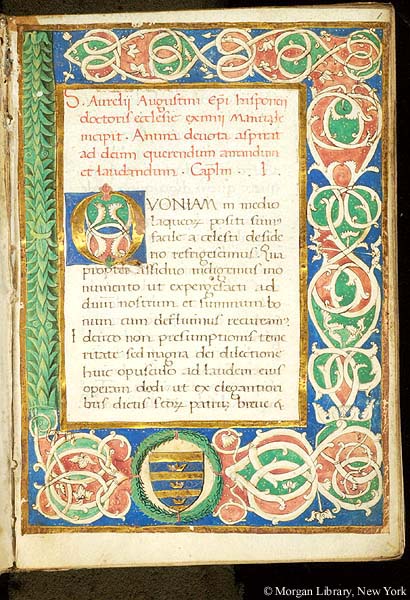 S. Aurelij Augustini Epi hisponeñ
doctoris ecclesie eximii Manuale
incipit. Anima devota aspirat
ad deum querendum amandum
et laudandum. Caplm. I.
QVONIAM in medio
laqueoꝝ positi sumꝰ
facile a celesti deside
rio refrigescimus. Qua
propter assiduo indigemus mo
numento ut expergefacti ad
deum nostrum et summum bo
num cum defluimus recuramꝰ.
Idcirco non presumptionis teme
ritate sed magna dei dilectione
huic opusculo ad laudem eius
operam dedi ut ex elegantiori
bus dictis scōꝝ patrū breve &
© Morgan Library, New York